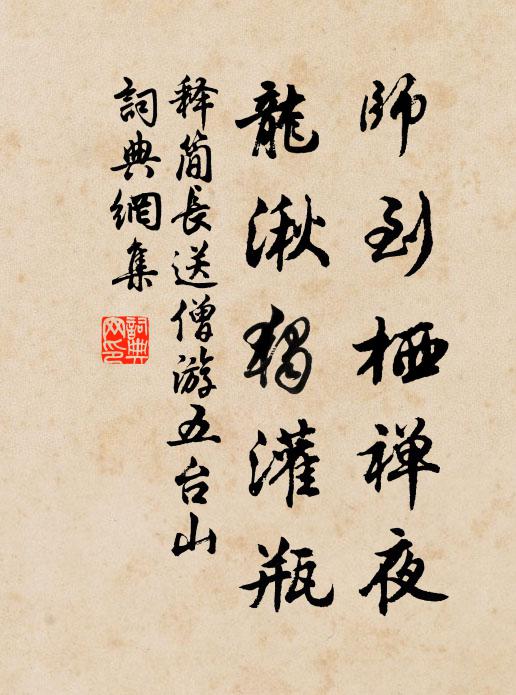 师到栖禅夜
龍湫獨灌瓶
释简長送僧游五台山
詞典網集
詞典網印